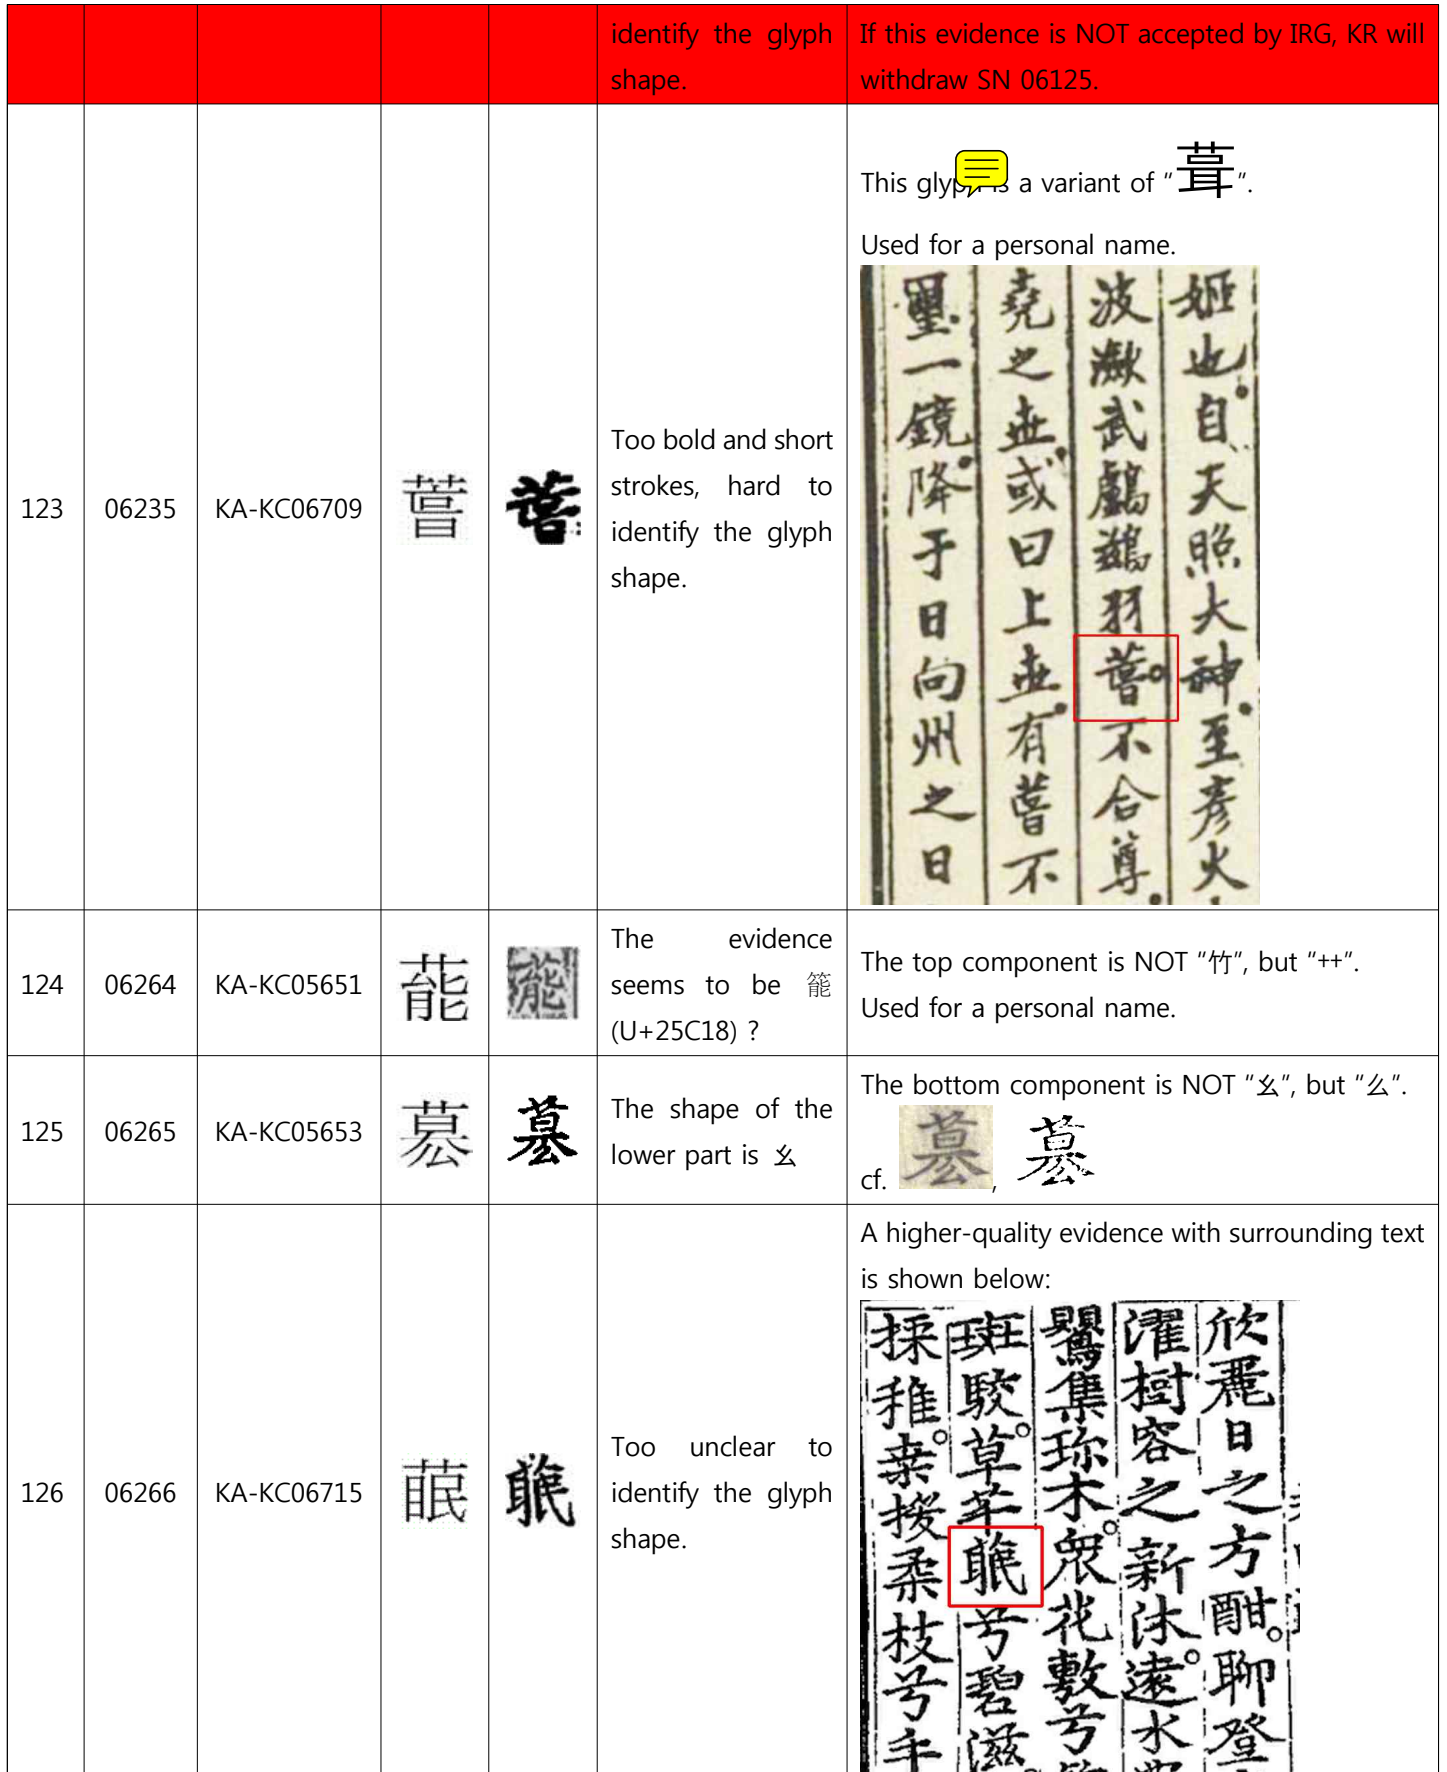 identify the glyph
shape.
If this evidence is NOT accepted by IRG, KR will
withdraw SN 06125.
123
06235
KA-KC06709
Too bold and short
strokes, hard to
identify the glyph
shape.
This is a variant of "葺".
Used for a personal name.
姬也自天照大神至彦火
波瀲武鸕鷀羽葺不合尊
堯之世或曰上世有葺不
璽一鏡降于日向州之日
124
06264
KA-KC05651
The evidence
seems to be 䇔
(U+25C18) ?
The top component is NOT "竹", but "艹".
Used for a personal name.
125
06265
KA-KC05653
The shape of the
lower part is 幺
The bottom component is NOT "幺", but "么".
cf. ,
126
06266
KA-KC06715
Too unclear to
identify the glyph
shape.
A higher-quality evidence with surrounding text
is shown below:
欣麗日之方酣聊登
濯樹容之新沐遠水
集珎木衆花敷兮
斑駮草芊兮碧滋
採稚桒捘柔枝兮手